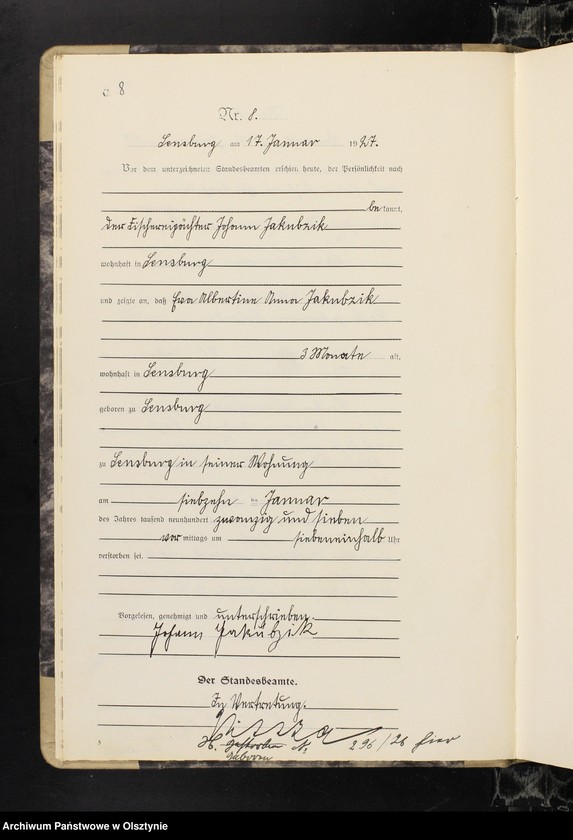 C 8
Nr. 8.
Sensburg am 17. Januar 1927.
Vor dem unterzeichneten Standesbeamten erschien heute, der Persönlichkeit nach
be kannt,
der Fischereipächter Johann Jakubzik
wohnhaft in Sensburg
und zeigte an, daß Ewa Albertine Anna Jakubzik
3 Monate alt,
wohnhaft in Sensburg
geboren zu Sensburg
zu Sensburg in seiner Wohnung
am siebzehn ten Januar
des Jahres tausend neunhundert zwanzig und sieben
vor mittags um siebeneinhalb Uhr
verstorben sei.
Vorgelesen, genehmigt und unterschrieben.
Johann Jakubzik
Der Standesbeamte.
In Vertretung.
H. gestorben Nr. 296/26 hier
geboren
Archiwum Państwowe w Olsztynie